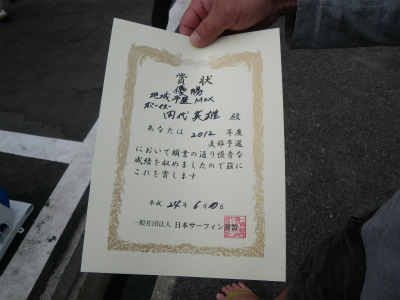 賞状
優勝
地域予選 MEN
ボーイズ
田代英雄 殿
あなたは 2012 年度
支部予選
において頭書の通り優秀な
成績を収めましたので茲に
これを賞します
平成 24年 6月 10日
一般社団法人 日本サーフィン連盟